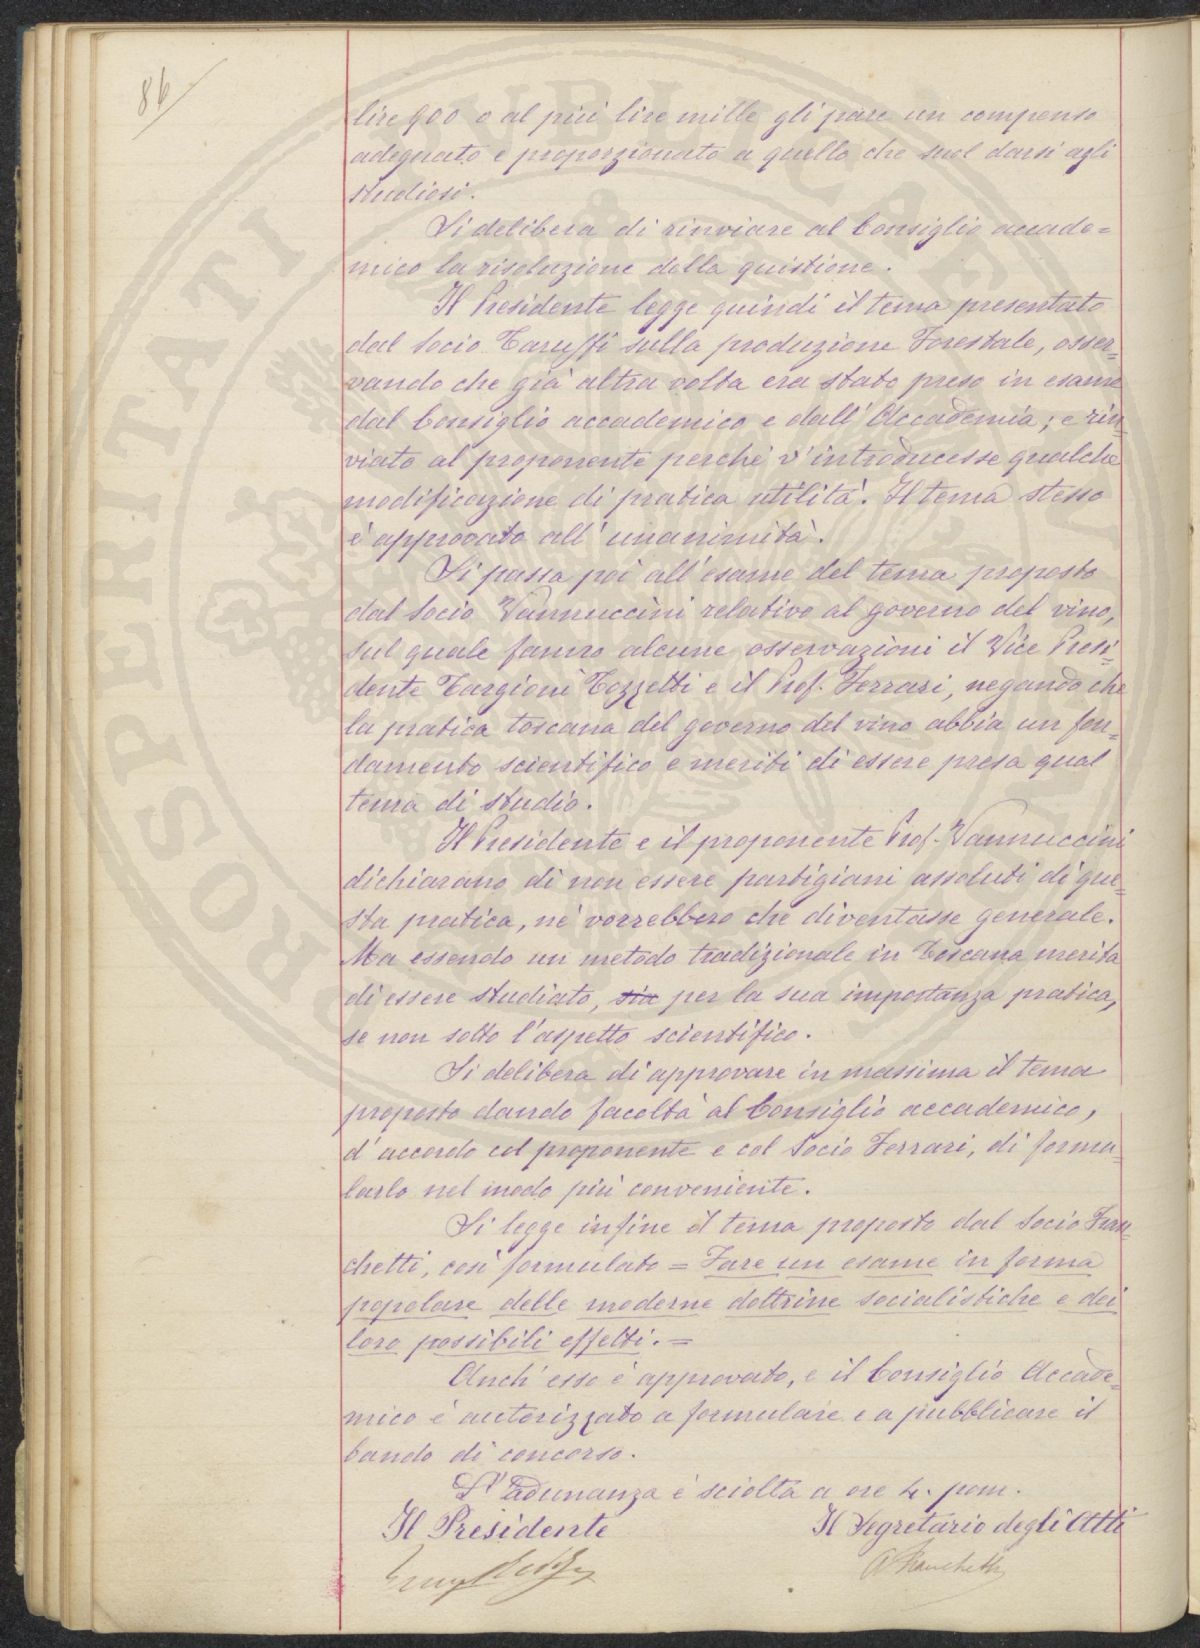 86
lire 900 o al più lire mille gli pare un compenso
adeguato e proporzionato a quello che suol darsi agli
studiosi.
Si delibera di rinviare al Consiglio accade=
mico la risoluzione della quistione.
Il Presidente legge quindi il tema presentato
dal Socio Taruffi sulla produzione Forestale, osser=
vando che già altra volta era stato preso in esame
dal Consiglio accademico e dall'Accademia; e rin=
viato al proponente perché v'introducesse qualche
modificazione di pratica utilità. Il tema stesso
è approvato all'unanimità.
Si passa poi all'esame del tema proposto
dal Socio Vannuccini relativo al governo del vino,
sul quale fanno alcune osservazioni il Vice Presi=
dente Targioni Tozzetti e il Prof. Ferrari, negando che
la pratica toscana del governo del vino abbia un fon=
damento scientifico e meriti di essere presa qual
tema di studio.
Il Presidente e il proponente Prof. Vannuccini
dichiarano di non essere partigiani assoluti di que=
sta pratica, né vorrebbero che diventasse generale.
Ma essendo un metodo tradizionale in Toscana merita
di essere studiato, sia per la sua importanza pratica,
se non sotto l'aspetto scientifico.
Si delibera di approvare in massima il tema
proposto dando facoltà al Consiglio accademico,
d'accordo col proponente e col Socio Ferrari, di formu=
larlo nel modo più conveniente.
Si legge infine il tema proposto dal Socio Fran=
chetti, così formulato = Fare un esame in forma
popolare delle moderne dottrine socialistiche e dei
loro possibili effetti. =
Anch'esso è approvato, e il Consiglio Accade=
mico è autorizzato a formulare e a pubblicare il
bando di concorso.
L'adunanza è sciolta a ore 4. pom.
Il Presidente Il Segretario degli Atti
A Franchetti
PROSPERITATI PUBLICAE